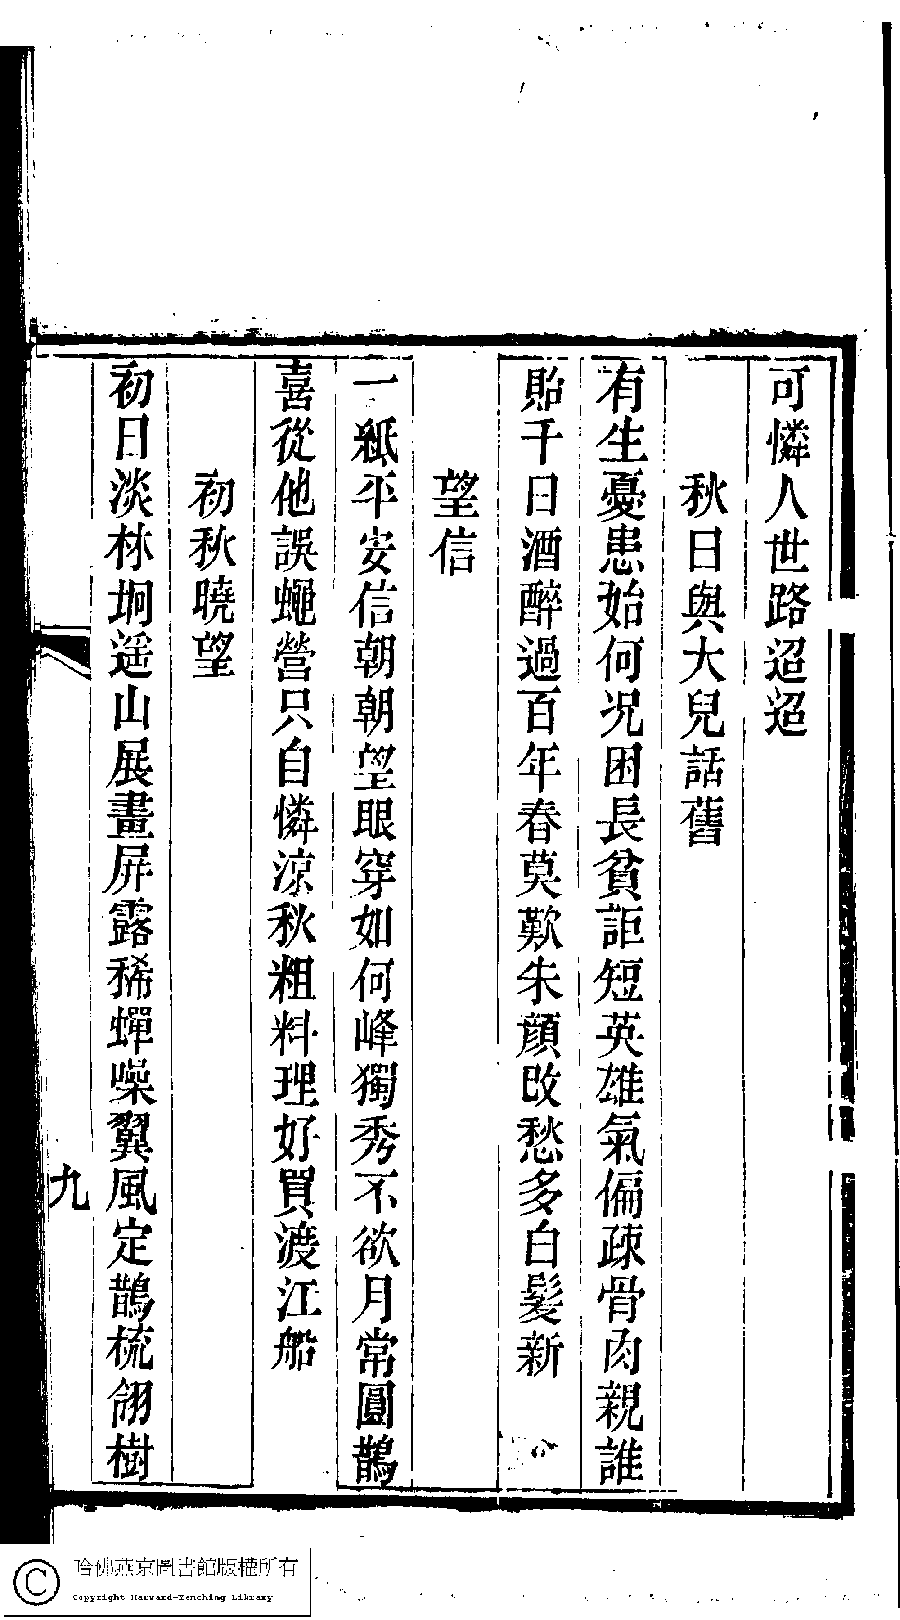 可憐人世路迢迢
秋日與大兒話舊
有生憂患始何况困長貧詎短英雄氣偏疎骨肉親誰
貽千日酒醉過百年春莫歎朱顔改愁多白髮新
望信
一紙平安信朝朝望眼穿如何峰獨秀不欲月常圓鵲
喜從他誤蠅營只自憐凉秋粗料理好買渡江船
初秋曉望
初日淡林坰遥山展畫屏露稀蟬噪翼風定鵲梳翎樹
九
哈佛燕京圖書館版權所有
Copyright Harvard-Yenching Library